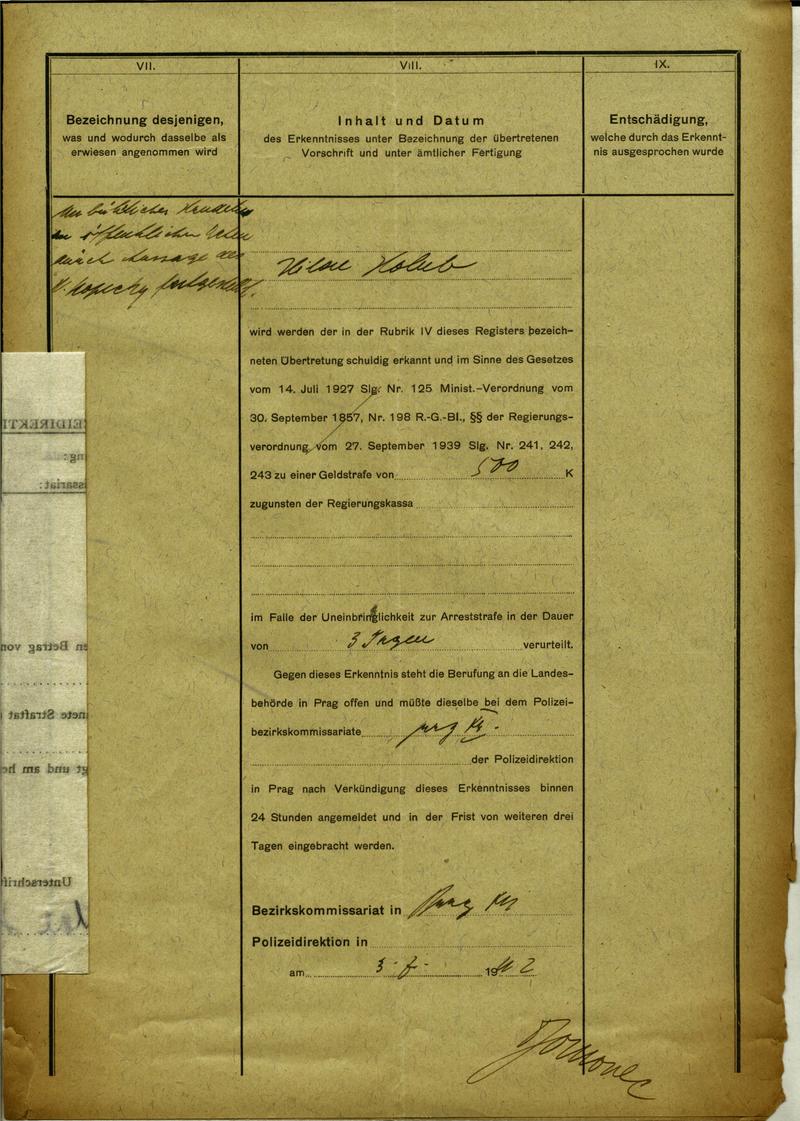 VII.
Bezeichnung desjenigen,
was und wodurch dasselbe als
erwiesen angenommen wird
öffentlichen
durch Aussage des
VIII.
Inhalt und Datum
des Erkenntnisses unter Bezeichnung der übertretenen
Vorschrift und unter ämtlicher Fertigung
Holub
wird werden der in der Rubrik IV dieses Registers bezeich-
neten Übertretung schuldig erkannt und im Sinne des Gesetzes
vom 14. Juli 1927 Slg. Nr. 125 Minist.-Verordnung vom
30. September 1857, Nr. 198 R.-G.-Bl., §§ der Regierungs-
verordnung vom 27. September 1939 Slg. Nr. 241, 242,
243 zu einer Geldstrafe von 500 K
zugunsten der Regierungskassa
im Falle der Uneinbringlichkeit zur Arreststrafe in der Dauer
von 3 Tagen verurteilt.
Gegen dieses Erkenntnis steht die Berufung an die Landes-
behörde in Prag offen und müßte dieselbe bei dem Polizei-
bezirkskommissariate Prag
der Polizeidirektion
in Prag nach Verkündigung dieses Erkenntnisses binnen
24 Stunden angemeldet und in der Frist von weiteren drei
Tagen eingebracht werden.
Bezirkskommissariat in Prag
Polizeidirektion in
am 3. 1942
IX.
Entschädigung,
welche durch das Erkennt-
nis ausgesprochen wurde
Betrag von
Straftat
und am
Unterschrift